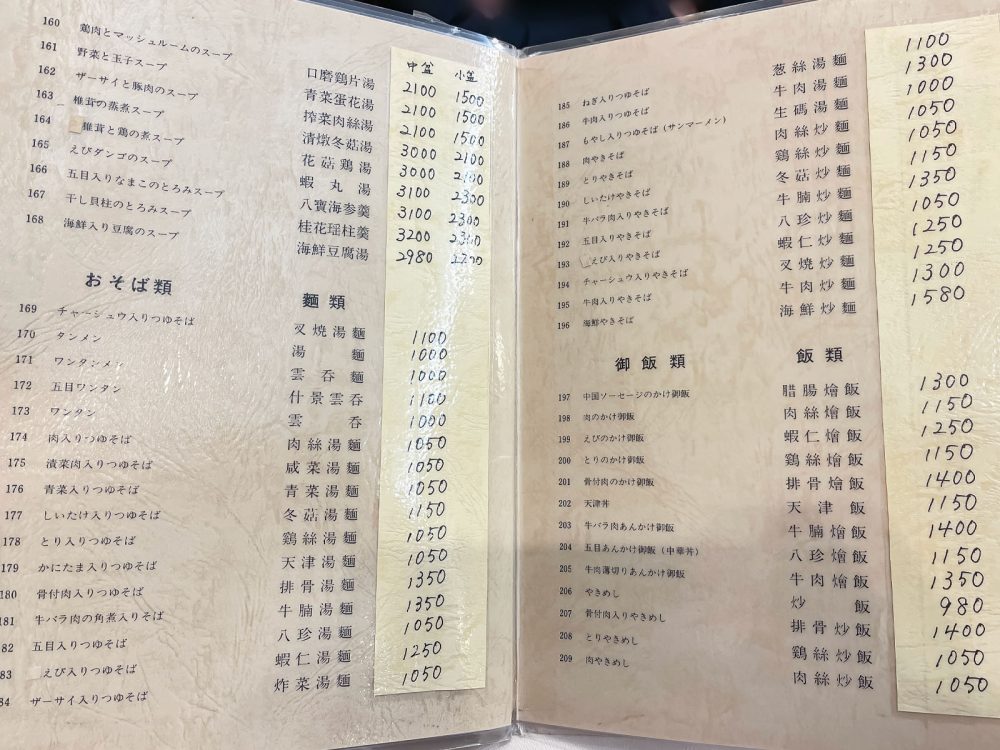 中盆 小盆
160 鶏肉とマッシュルームのスープ 口磨鶏片湯 2100 1500
161 野菜と玉子スープ 青菜蛋花湯 2100 1500
162 ザーサイと豚肉のスープ 搾菜肉絲湯 2100 1500
163 椎茸の蒸煮スープ 清燉冬菇湯 3000 2100
164 椎茸と鶏の煮スープ 花菇鶏湯 3000 2100
165 えびダンゴのスープ 蝦丸湯 3100 2300
166 五目入りなまこのとろみスープ 八寶海参羹 3100 2300
167 干し貝柱のとろみスープ 桂花瑶柱羹 3200 2300
168 海鮮入り豆腐のスープ 海鮮豆腐湯 2980 2200
おそば類 麵類
169 チャーシュウ入りつゆそば 叉焼湯麵 1100
170 タンメン 湯麵 1000
171 ワンタンメン 雲呑麵 1000
172 五目ワンタン 什景雲呑 1100
173 ワンタン 雲呑 1000
174 肉入りつゆそば 肉絲湯麵 1050
175 漬菜肉入りつゆそば 咸菜湯麵 1050
176 青菜入りつゆそば 青菜湯麵 1050
177 しいたけ入りつゆそば 冬菇湯麵 1150
178 とり入りつゆそば 鶏絲湯麵 1050
179 かにたま入りつゆそば 天津湯麵 1050
180 骨付肉入りつゆそば 排骨湯麵 1350
181 牛バラ肉の角煮入りそば 牛腩湯麵 1350
82 五目入りつゆそば 八珍湯麵 1050
83 えび入りつゆそば 蝦仁湯麵 1250
84 ザーサイ入りつゆそば 炸菜湯麵 1050
185 ねぎ入りつゆそば 葱絲湯麵 1100
186 牛肉入りつゆそば 牛肉湯麵 1300
187 もやし入りつゆそば(サンマーメン) 生碼湯麵 1000
188 肉やきそば 肉絲炒麵 1050
189 とりやきそば 鶏絲炒麵 1050
190 しいたけやきそば 冬菇炒麵 1150
191 牛バラ肉入りやきそば 牛腩炒麵 1350
192 五目入りやきそば 八珍炒麵 1050
193 えび入りやきそば 蝦仁炒麵 1250
194 チャーシュウ入りやきそば 叉焼炒麵 1250
195 牛肉入りやきそば 牛肉炒麵 1300
196 海鮮やきそば 海鮮炒麵 1580
御飯類 飯類
197 中国ソーセージのかけ御飯 腊腸燴飯 1300
198 肉のかけ御飯 肉絲燴飯 1150
199 えびのかけ御飯 蝦仁燴飯 1250
200 とりのかけ御飯 鶏絲燴飯 1150
201 骨付肉のかけ御飯 排骨燴飯 1400
202 天津丼 天津飯 1150
203 牛バラ肉あんかけ御飯 牛腩燴飯 1400
204 五目あんかけ御飯(中華丼) 八珍燴飯 1150
205 牛肉薄切りあんかけ御飯 牛肉燴飯 1350
206 やきめし 炒飯 980
207 骨付肉入りやきめし 排骨炒飯 1400
208 とりやきめし 鶏絲炒飯 1050
209 肉やきめし 肉絲炒飯 1050